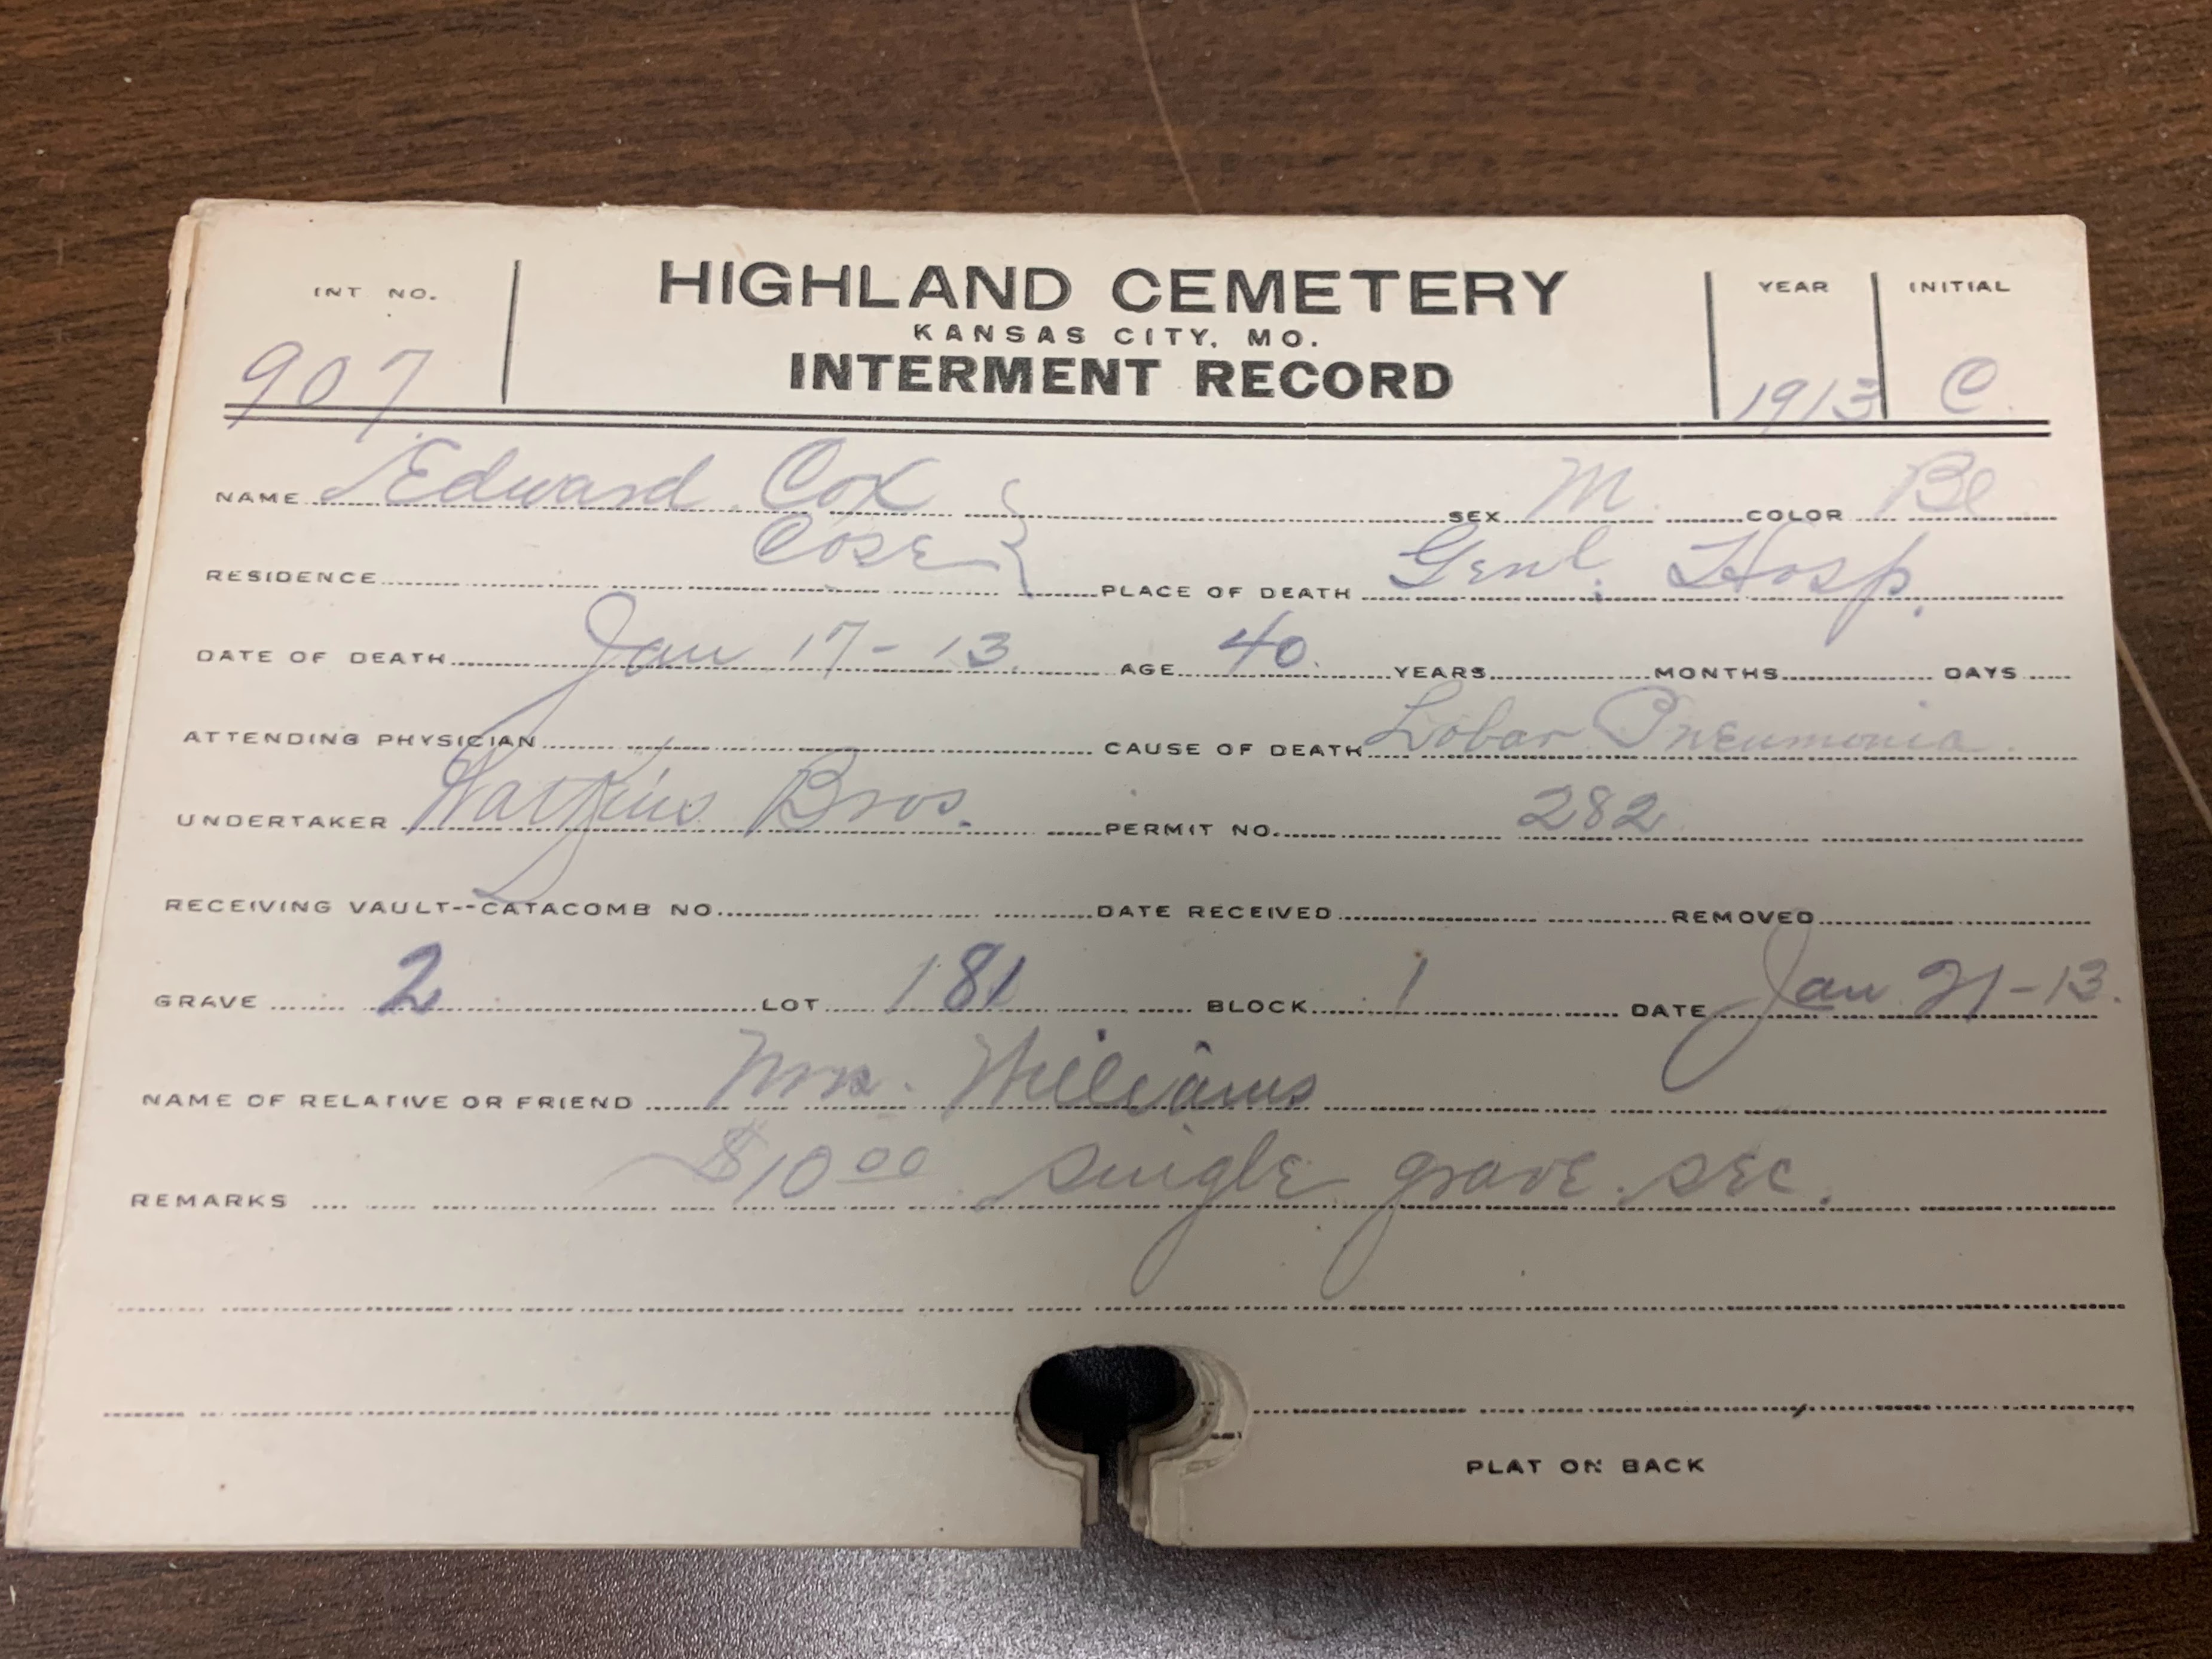 INT. NO. HIGHLAND CEMETERY YEAR INITIAL
KANSAS CITY, MO.
907 INTERMENT RECORD 1913 C
NAME Edward Cox SEX M COLOR Bl
Cose
RESIDENCE PLACE OF DEATH Genl. Hosp.
DATE OF DEATH Jan 17-13 AGE 40 YEARS MONTHS DAYS
ATTENDING PHYSICIAN CAUSE OF DEATH Lobar Pneumonia
UNDERTAKER Watkins Bros. PERMIT NO. 282
RECEIVING VAULT--CATACOMB NO. DATE RECEIVED REMOVED
GRAVE 2 LOT 181 BLOCK 1 DATE Jan 21-13.
NAME OF RELATIVE OR FRIEND Mrs. Williams
REMARKS $10 00 single grave sec.
PLAT ON BACK